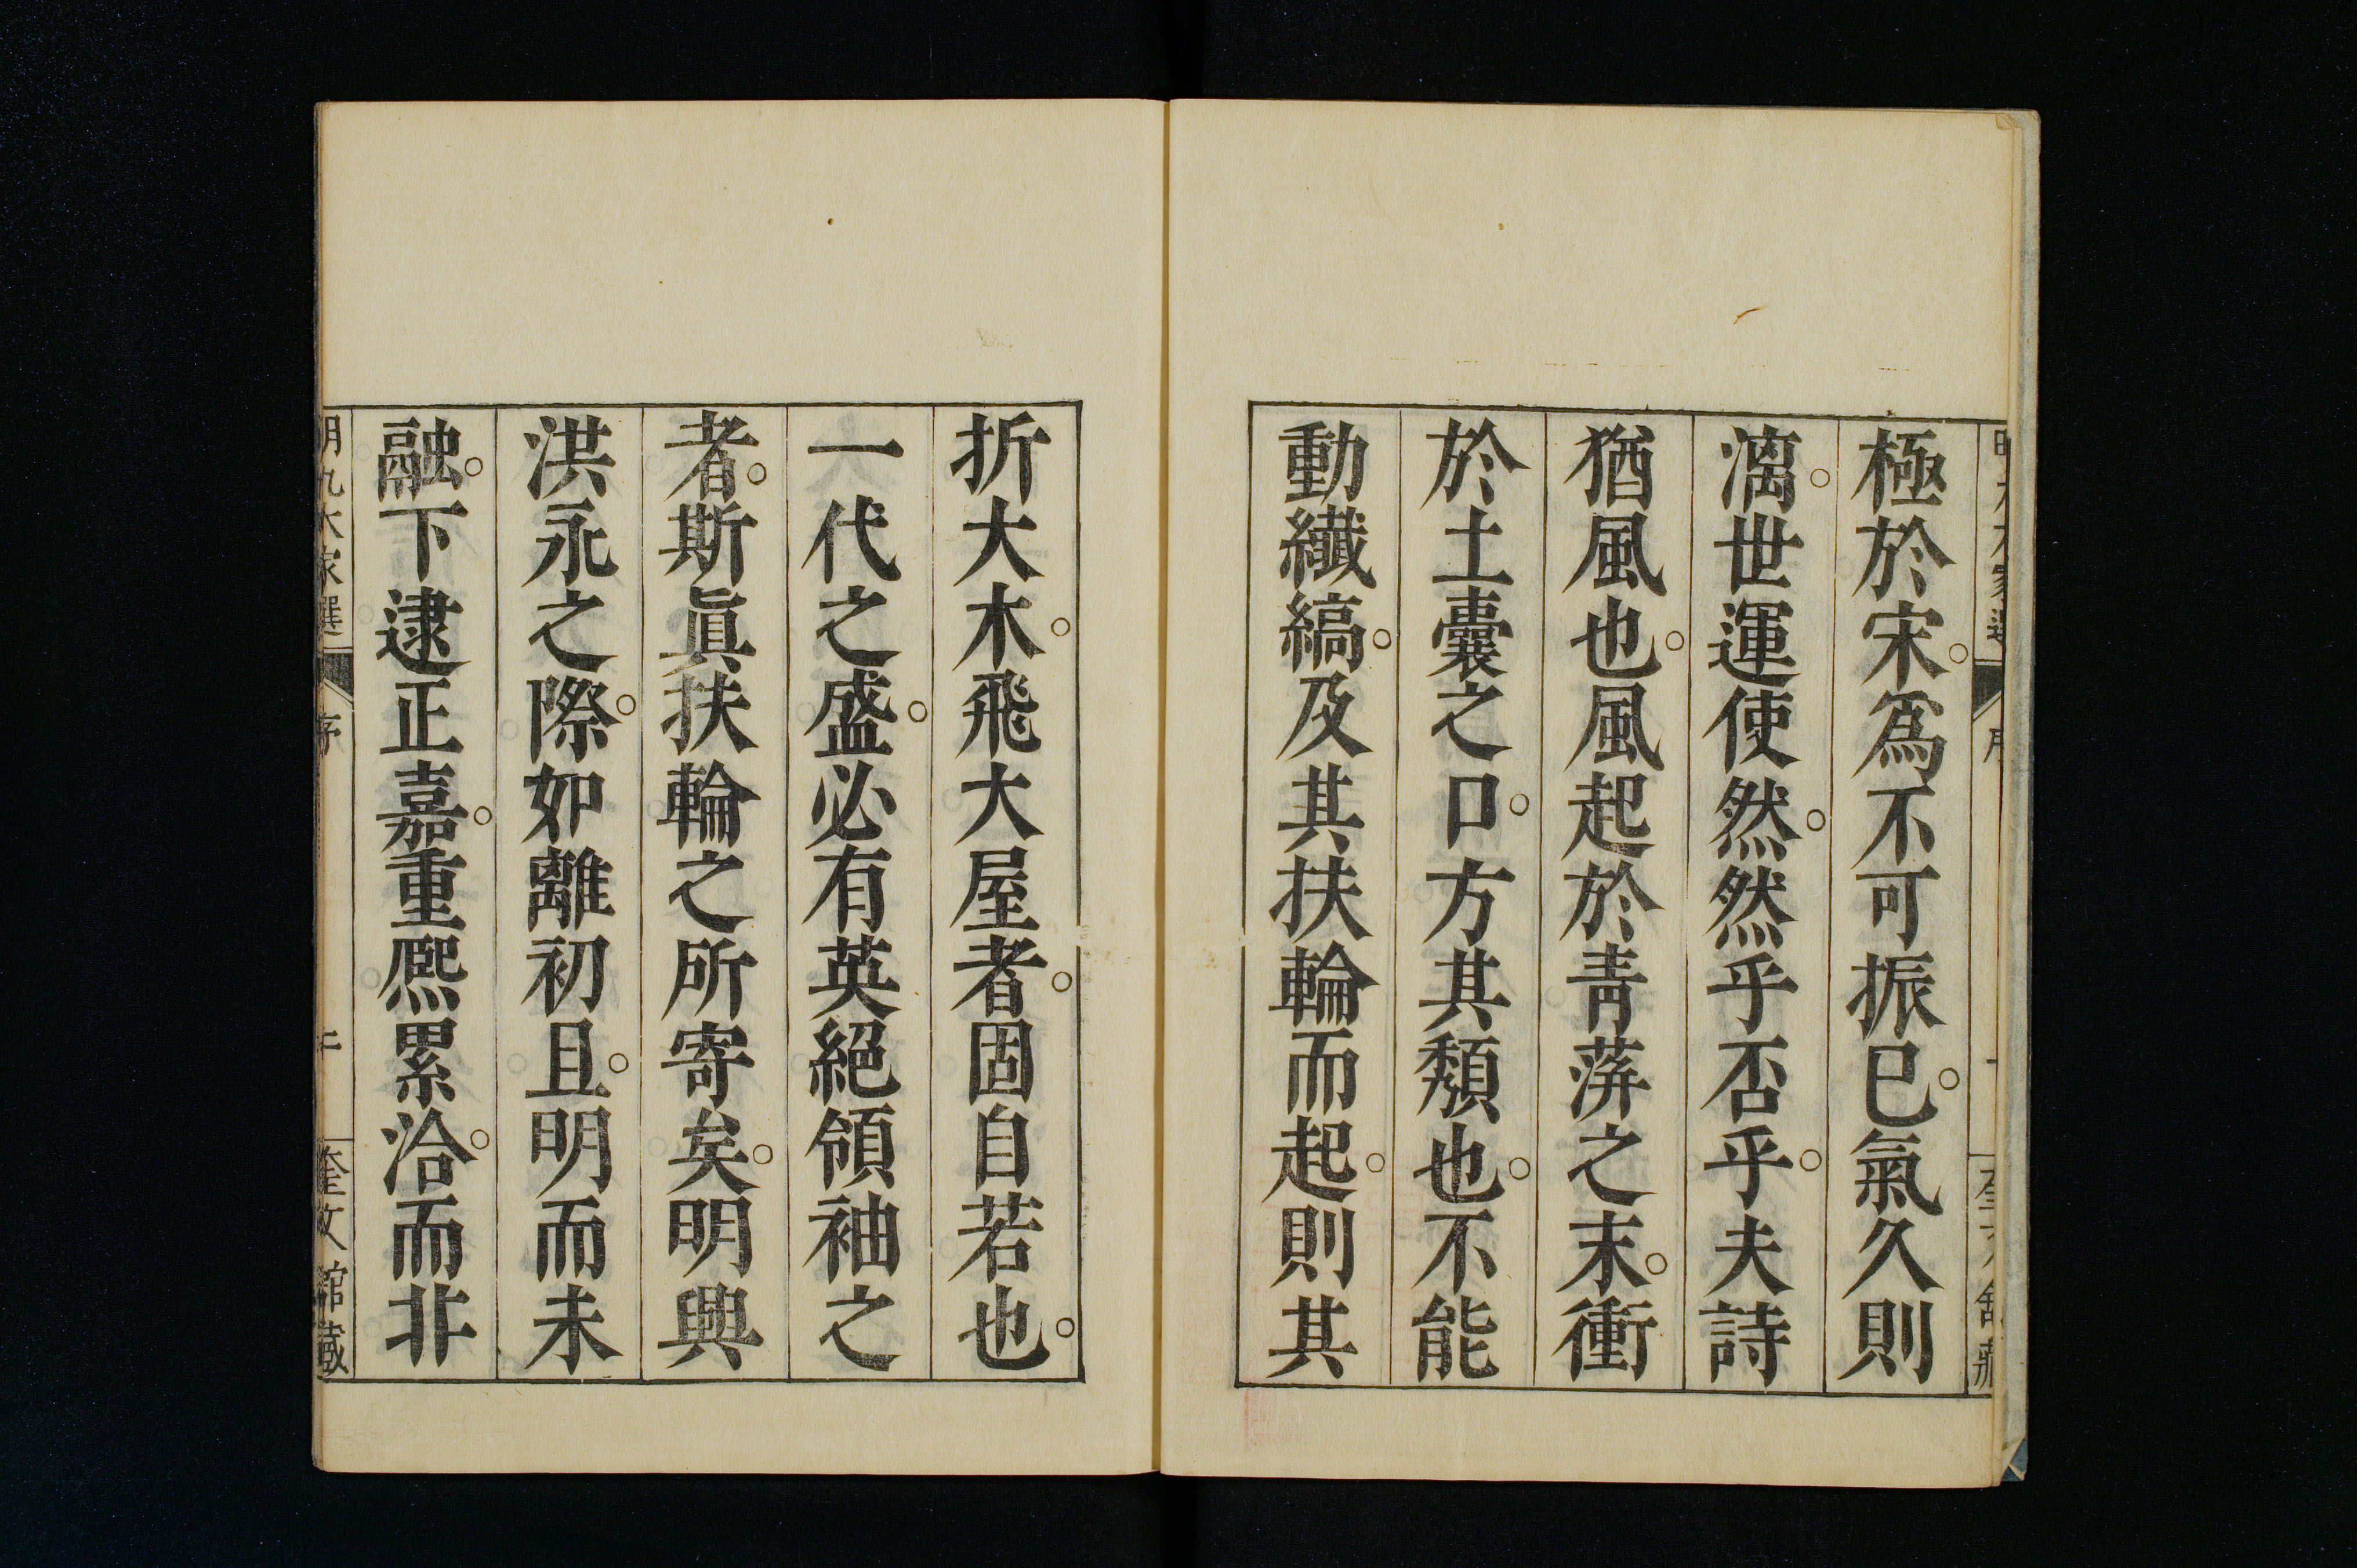 極於宋。爲不可振巳。氣久則
漓。世運使然。然乎否乎。夫詩
猶風也。風起於青蓱之末。衝
於土囊之口。方其頹也。不能
動纖縞。及其扶輪而起。則其
折大木。飛大屋者。固自若也。
一代之盛。必有英絕領袖之
者。斯眞扶輪之所寄矣。明興
洪永之際。如離初且。明而未
融。下逮正嘉。重熈累洽。而非
明九大家選 序 二 奎文館藏